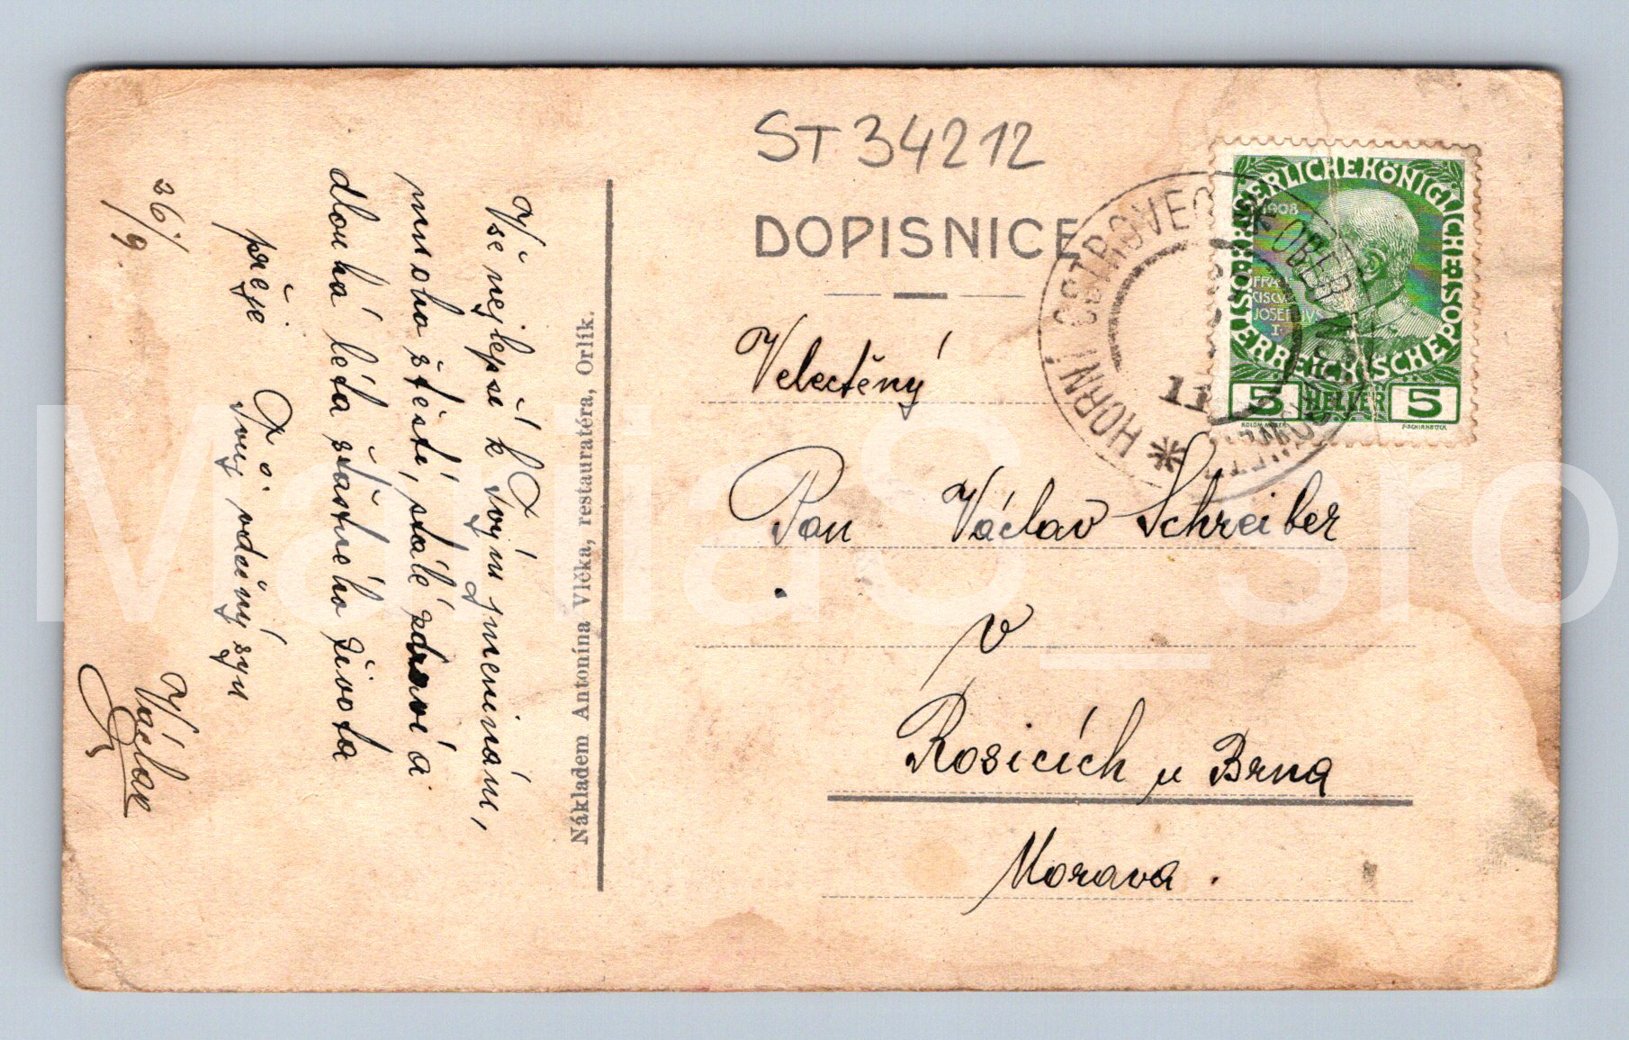 ST 34212
DOPISNICE
HORNÍ OSTROVEC
KAISERLICHE KÖNIGLICHE ÖSTERREICHISCHE POST
1908
FRANCISCVS
JOSEPHVS
I
5 HELLER 5
11
Velectěný
Pan Václav Schreiber
v
Rosicích u Brna
Morava.
Nákladem Antonína Vlčka, restauratéra, Orlík.
Vše nejlepší k Tvým jmeninám,
mnoho štěstí, stálé zdraví a
dlouhá léta šťastného života
přeje Tvůj vděčný syn
Václav
26/9
MaliaS_sro